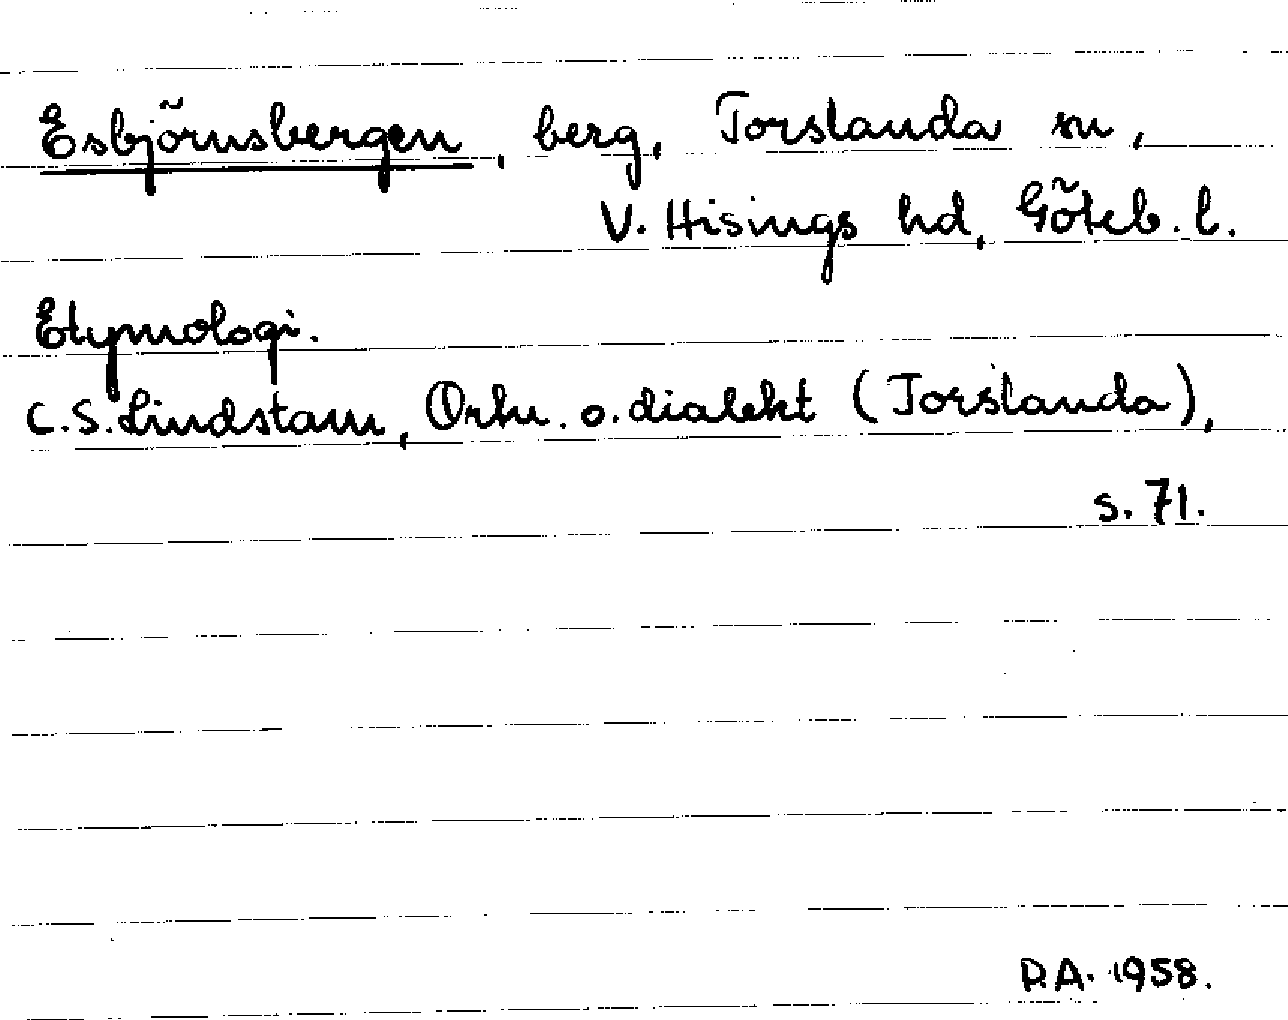 Esbjörnsbergen, berg, Torslanda sn,
V. Hisings hd, Göteb. l.
Etymologi.
C.S. Lindstam, Ortn. o. dialekt (Torslanda),
s. 71.
R.A. 1958.